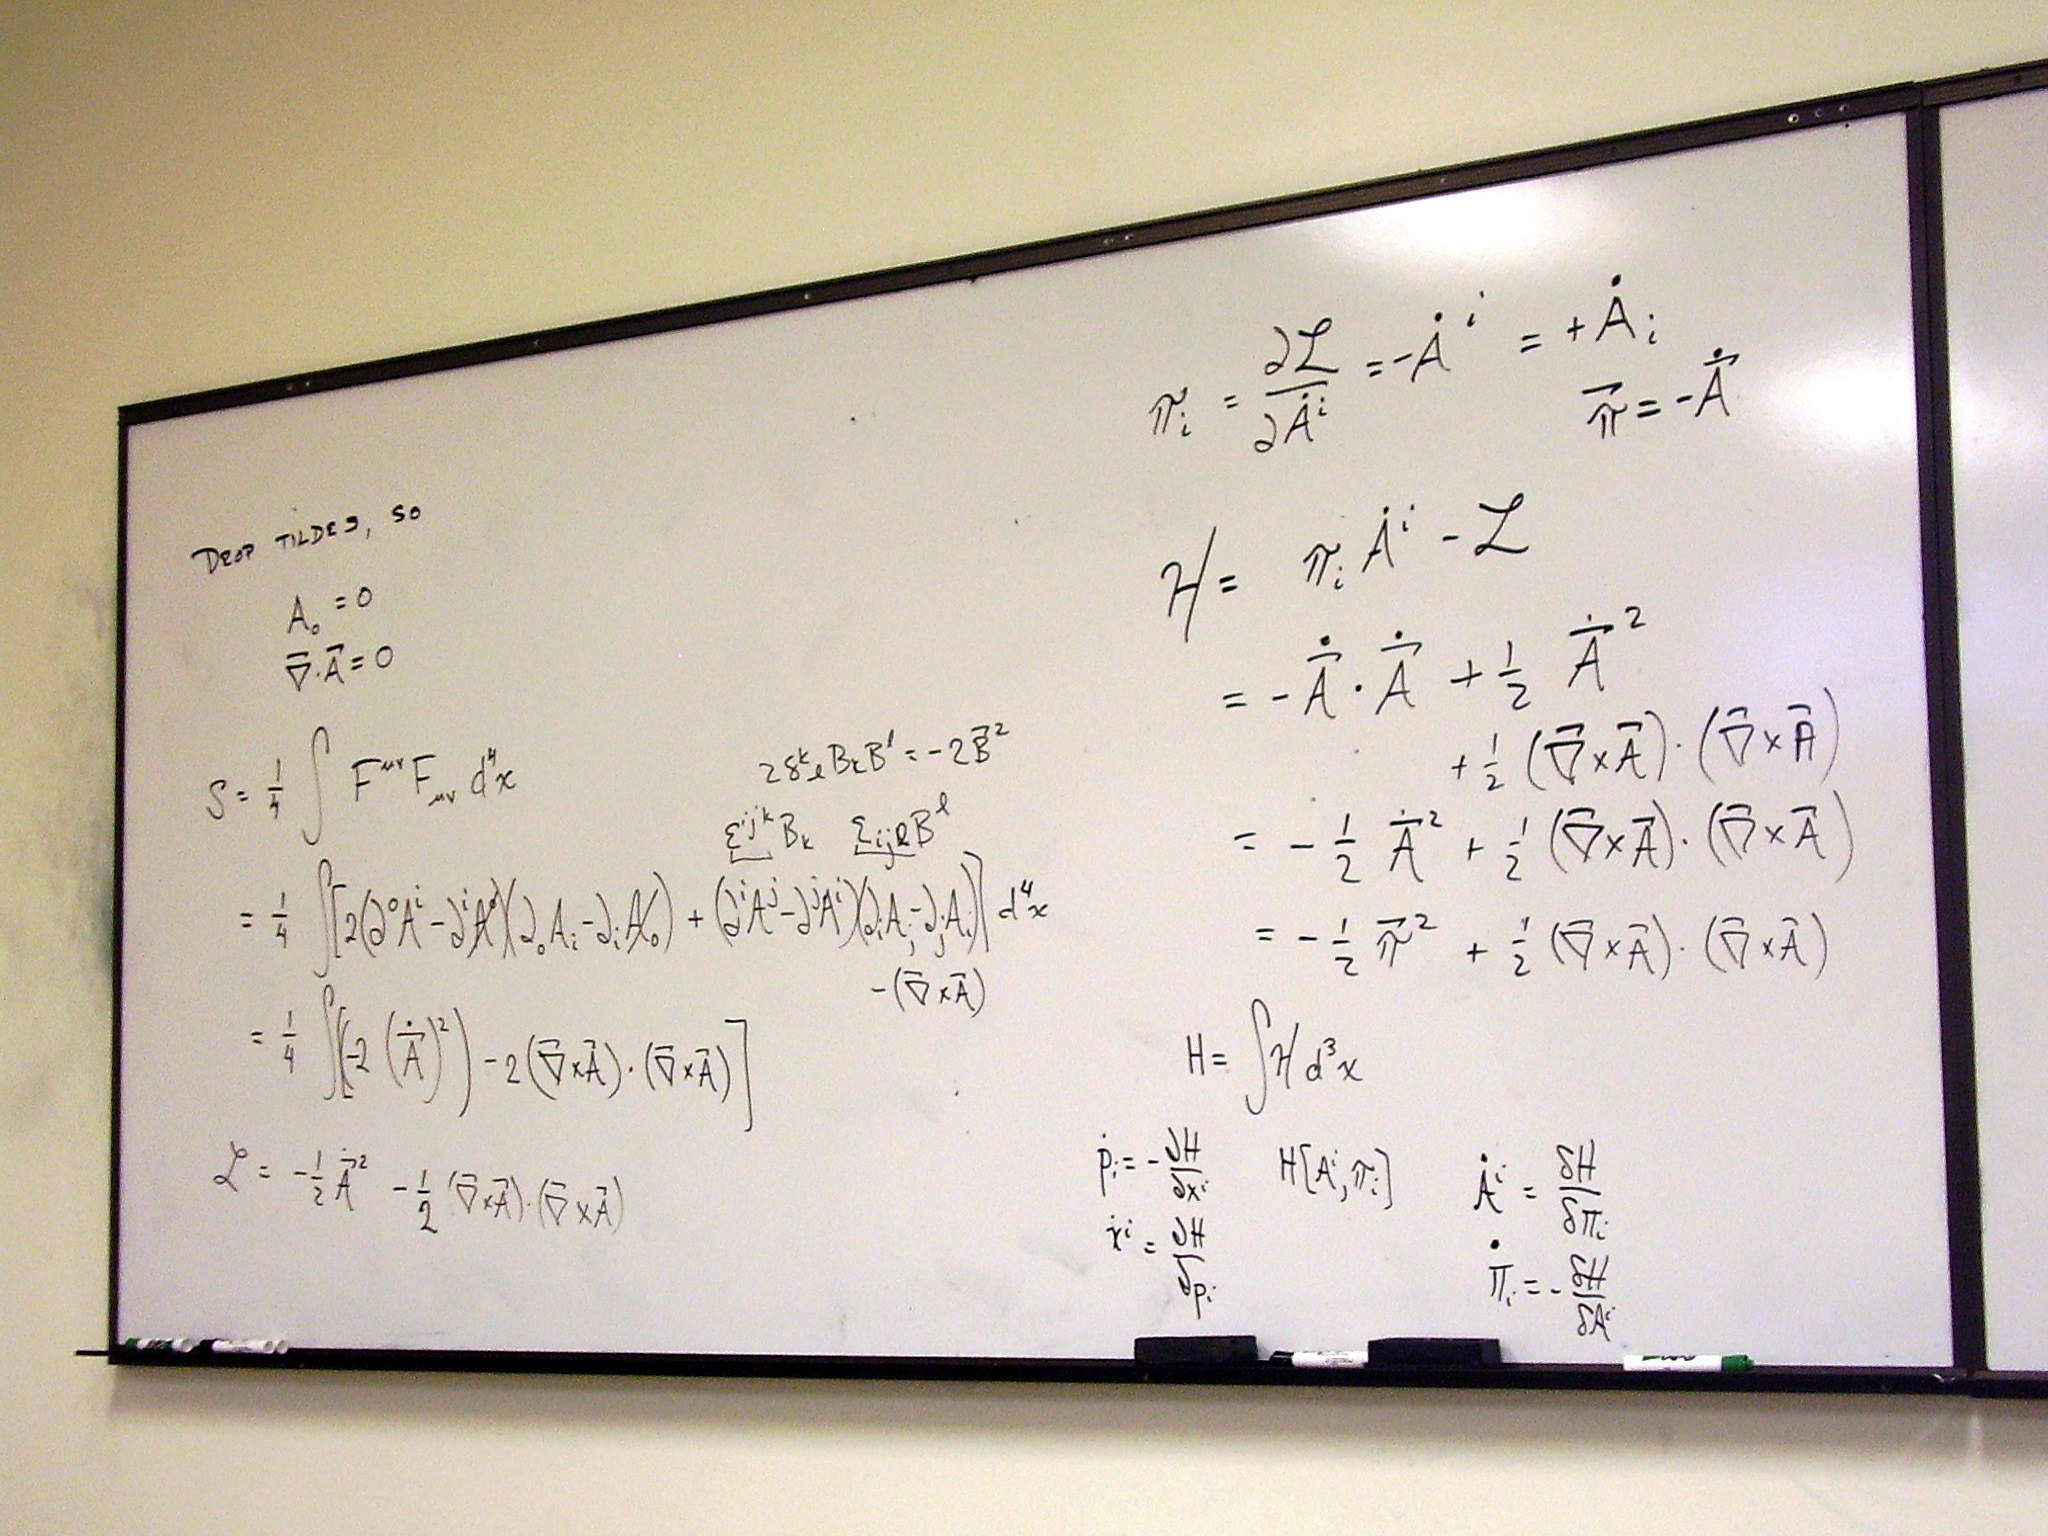 DROP TILDES, SO
A₀ = 0
∇⃗·A⃗ = 0
S = 1/4 ∫ F^{μν} F_{μν} d⁴x
2δ^k_l B_k B^l = -2B⃗²
ε^{ijk} B_k ε_{ijl} B^l
= 1/4 ∫[2(∂⁰A^i - ∂^iA⁰)(∂₀A_i - ∂_iA₀) + (∂^iA^j - ∂^jA^i)(∂_iA_j - ∂_jA_i)] d⁴x
-(∇⃗×A⃗)
= 1/4 ∫[(-2(Ȧ⃗)²) - 2(∇⃗×A⃗)·(∇⃗×A⃗)]
ℒ = -1/2 Ȧ⃗² - 1/2 (∇⃗×A⃗)·(∇⃗×A⃗)
π_i = ∂ℒ/∂Ȧ^i = -Ȧ^i = +Ȧ_i
π⃗ = -Ȧ⃗
ℋ = π_i Ȧ^i - ℒ
= -Ȧ⃗·Ȧ⃗ + 1/2 Ȧ⃗²
+ 1/2 (∇⃗×A⃗)·(∇⃗×A⃗)
= -1/2 Ȧ⃗² + 1/2 (∇⃗×A⃗)·(∇⃗×A⃗)
= -1/2 π⃗² + 1/2 (∇⃗×A⃗)·(∇⃗×A⃗)
H = ∫ℋ d³x
ṗ_i = -∂H/∂x^i H[A^i, π_i] Ȧ^i = δH/δπ_i
ẋ^i = ∂H/∂p_i π̇_i = -δH/δA^i